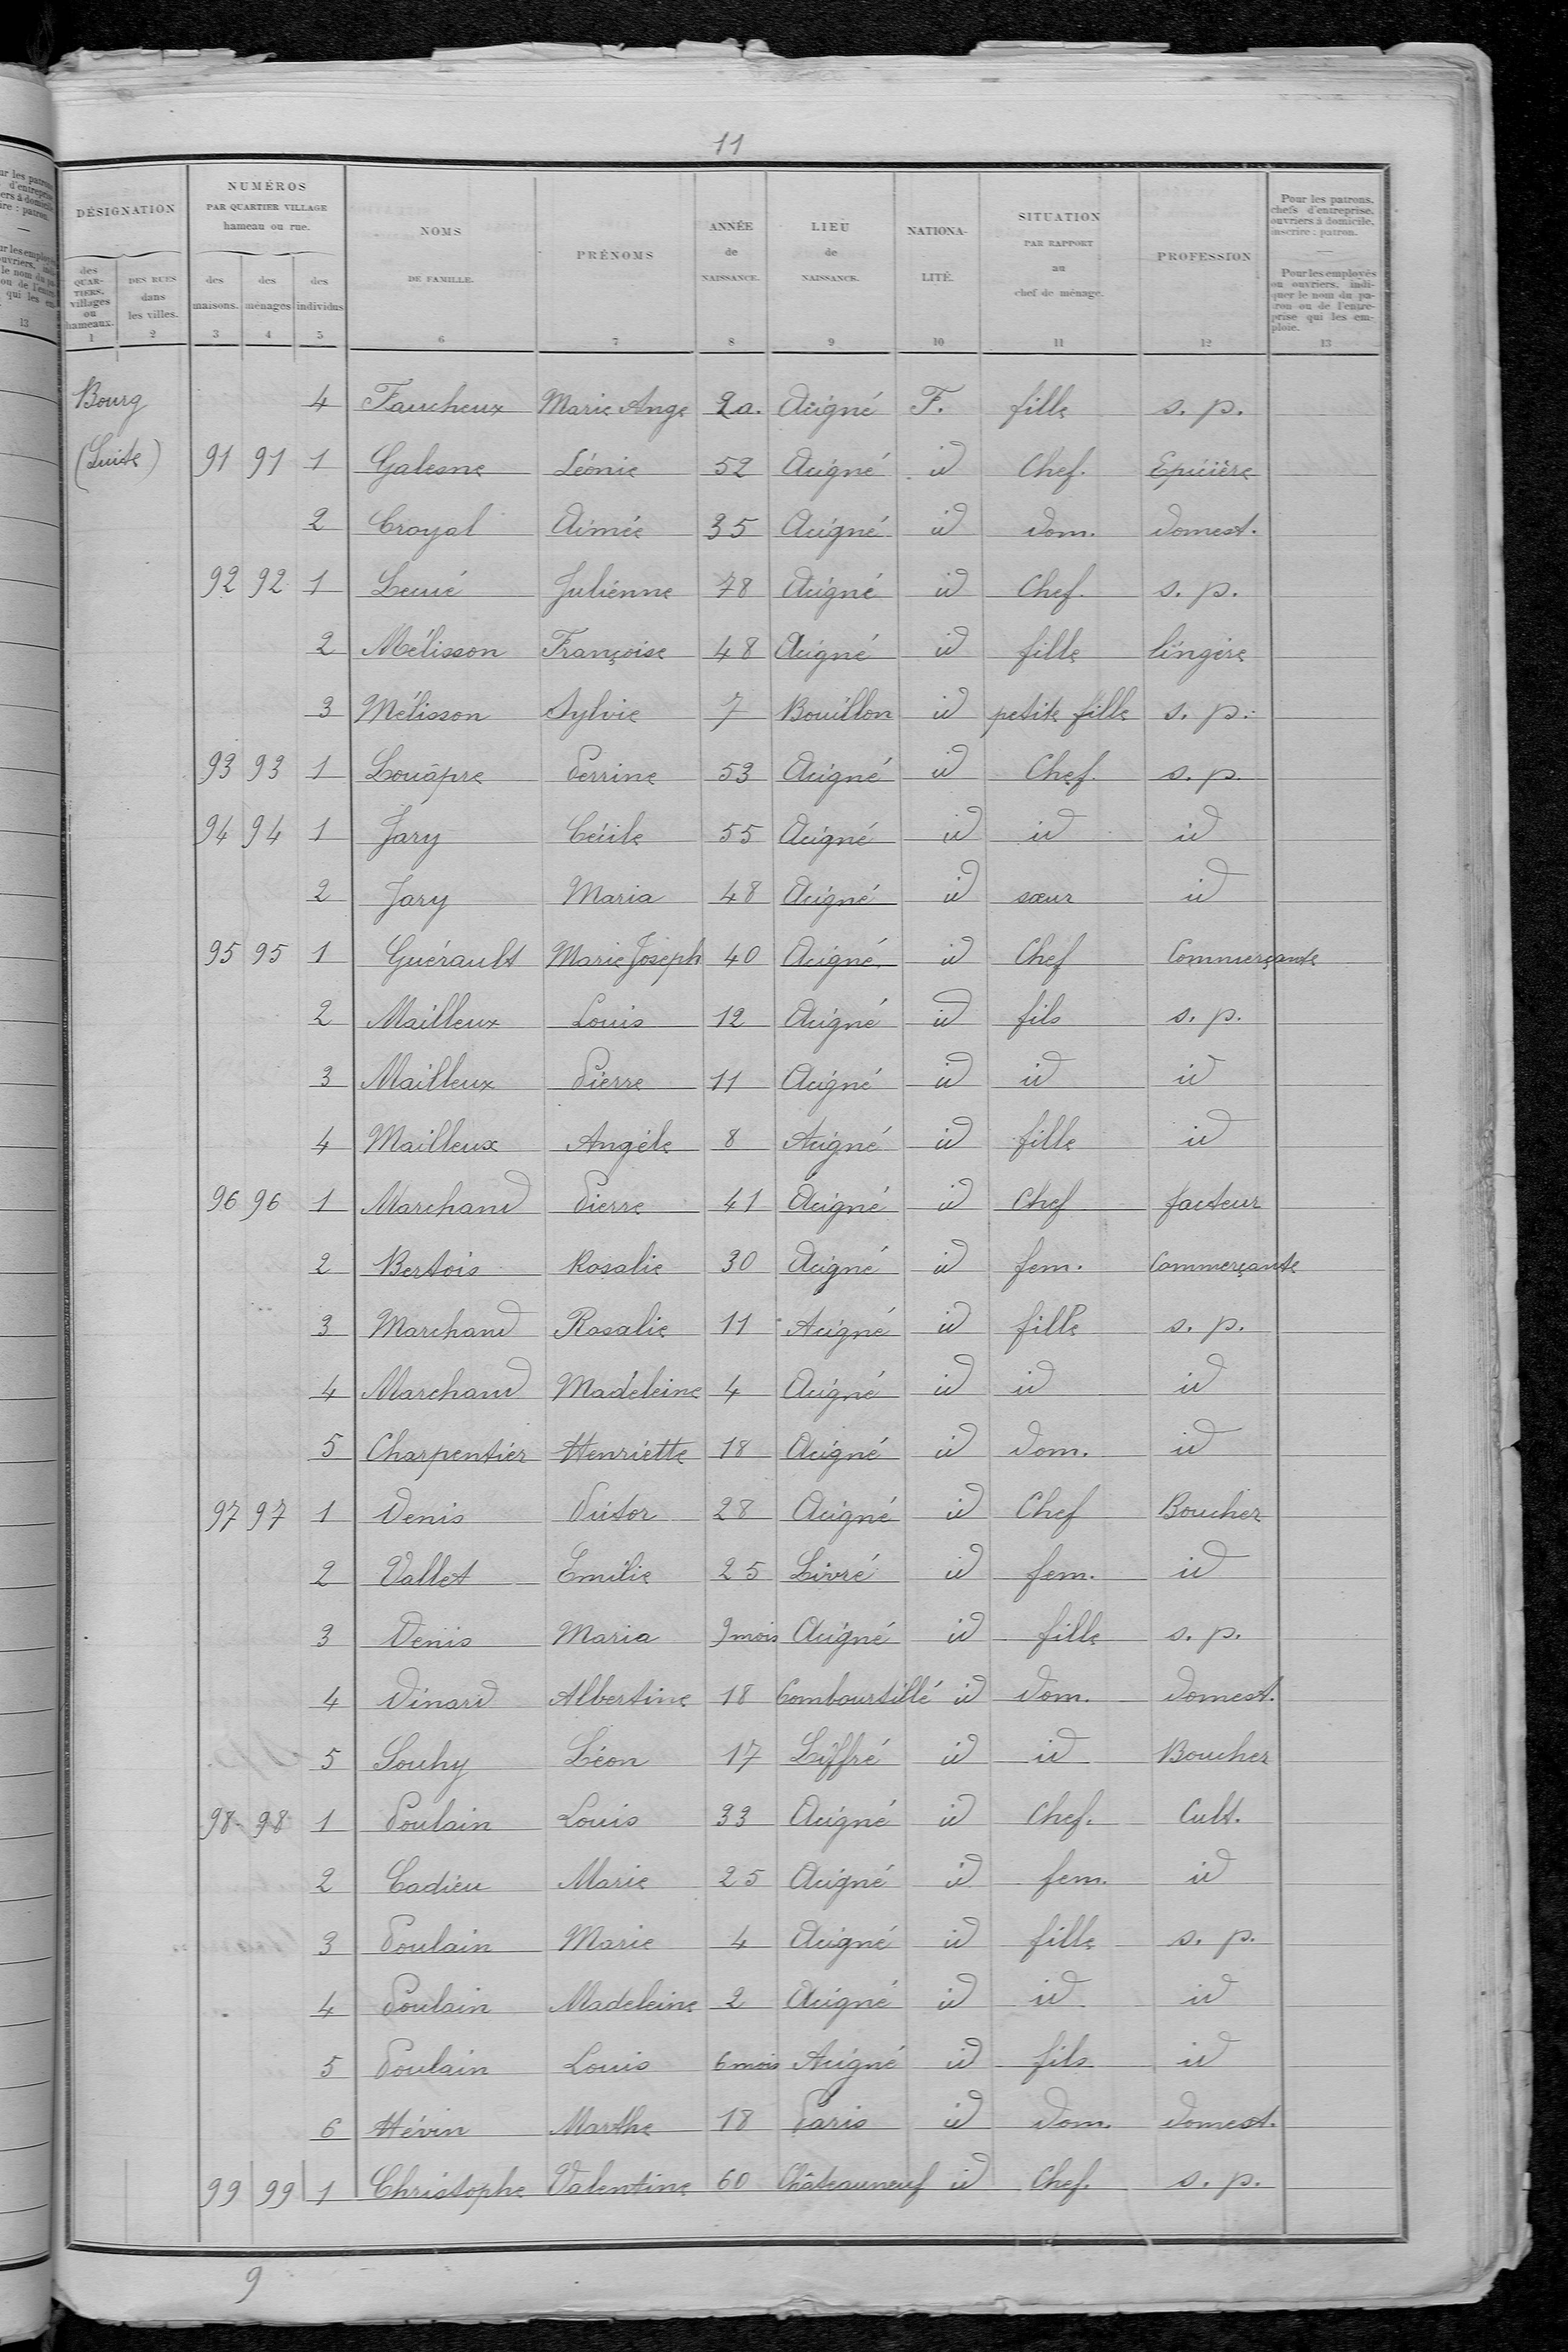 11
DÉSIGNATION | NUMÉROS PAR QUARTIER VILLAGE hameau ou rue. | NOMS DE FAMILLE. | PRÉNOMS | ANNÉE de NAISSANCE. | LIEU de NAISSANCE. | NATIONA-LITÉ. | SITUATION PAR RAPPORT au chef de ménage. | PROFESSION | Pour les patrons, chefs d'entreprise, ouvriers à domicile, inscrire : patron. — Pour les employés ou ouvriers, indiquer le nom du patron ou de l'entreprise qui les emploie.
des QUARTIERS, villages ou hameaux. | DES RUES dans les villes. | des maisons. | des ménages | des individus
1 | 2 | 3 | 4 | 5 | 6 | 7 | 8 | 9 | 10 | 11 | 12 | 13
Bourg 4 Faucheux Marie Ange 2 a. Acigné F. fille s. p.
(Suite) 91 91 1 Galesne Léonie 52 Acigné id Chef. Epicière
2 Croyal Aimée 35 Acigné id dom. domest.
92 92 1 Julienne 78 Acigné id Chef. s. p.
2 Mélisson Françoise 48 Acigné id fille lingère
3 Mélisson Sylvie 7 Bouillon id petite fille s. p.
93 93 1 Louâpre Perrine 53 Acigné id Chef. s. p.
94 94 1 Jary Cécile 55 Acigné id id id
2 Jary Maria 48 Acigné id sœur id
95 95 1 Guérault Marie Joseph 40 Acigné id Chef Commerçante
2 Mailleux Louis 12 Acigné id fils s. p.
3 Mailleux Pierre 11 Acigné id id id
4 Mailleux Angèle 8 Acigné id fille id
96 96 1 Marchand Pierre 41 Acigné id Chef facteur
2 Bertois Rosalie 30 Acigné id fem. Commerçante
3 Marchand Rosalie 11 Acigné id fille s. p.
4 Marchand Madeleine 4 Acigné id id id
5 Charpentier Henriette 18 Acigné id dom. id
97 97 1 Denis Victor 28 Acigné id Chef Boucher
2 Vallet Emilie 25 Livré id fem. id
3 Denis Maria 9 mois Acigné id fille s. p.
4 Dinard Albertine 18 Combourtillé id dom. domest.
5 Souhy Léon 17 Liffré id id Boucher
98 98 1 Poulain Louis 33 Acigné id Chef. Cult.
2 Cadieu Marie 25 Acigné id fem. id
3 Poulain Marie 4 Acigné id fille s. p.
4 Poulain Madeleine 2 Acigné id id id
5 Poulain Louis 6 mois Acigné id fils id
6 Hévin Marthe 18 Paris id dom. domest.
99 99 1 Christophe Valentine 60 Châteauneuf id Chef. s. p.
9